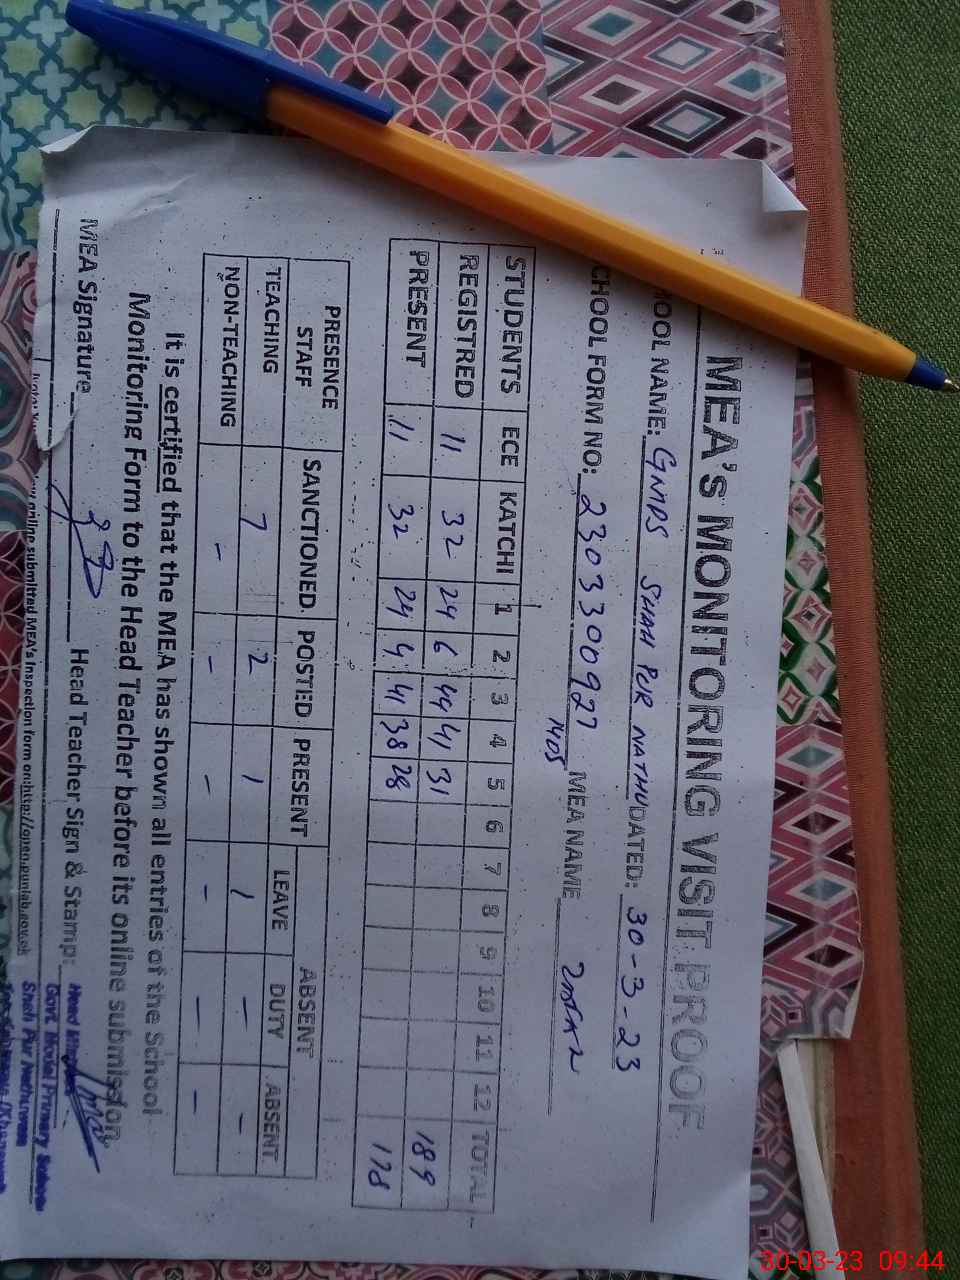 MEA's MONITORING VISIT PROOF
HOOL NAME: GMPS SHAH PUR NATHU DATED: 30-3-23
CHOOL FORM NO: 2303300927 MEA NAME
STUDENTS ECE KATCHI 1 2 3 4 5 6 7 8 9 10 11 12 TOTAL
REGISTRED 11 32 24 6 44 41 31 189
PRESENT 11 32 24 4 41 38 28 178
PRESENCE STAFF SANCTIONED POSTED PRESENT ABSENT
LEAVE DUTY ABSENT
TEACHING 7 2 1 1 - -
NON-TEACHING - - - - - -
It is certified that the MEA has shown all entries of the School
Monitoring Form to the Head Teacher before its online submission
MEA Signature Head Teacher Sign & Stamp:
Govt. Model Primary School
Shah Pur Nathuwan
online submitted MEA's Inspection form on:http://open.punjab.gov.pk
30-03-23 09:44